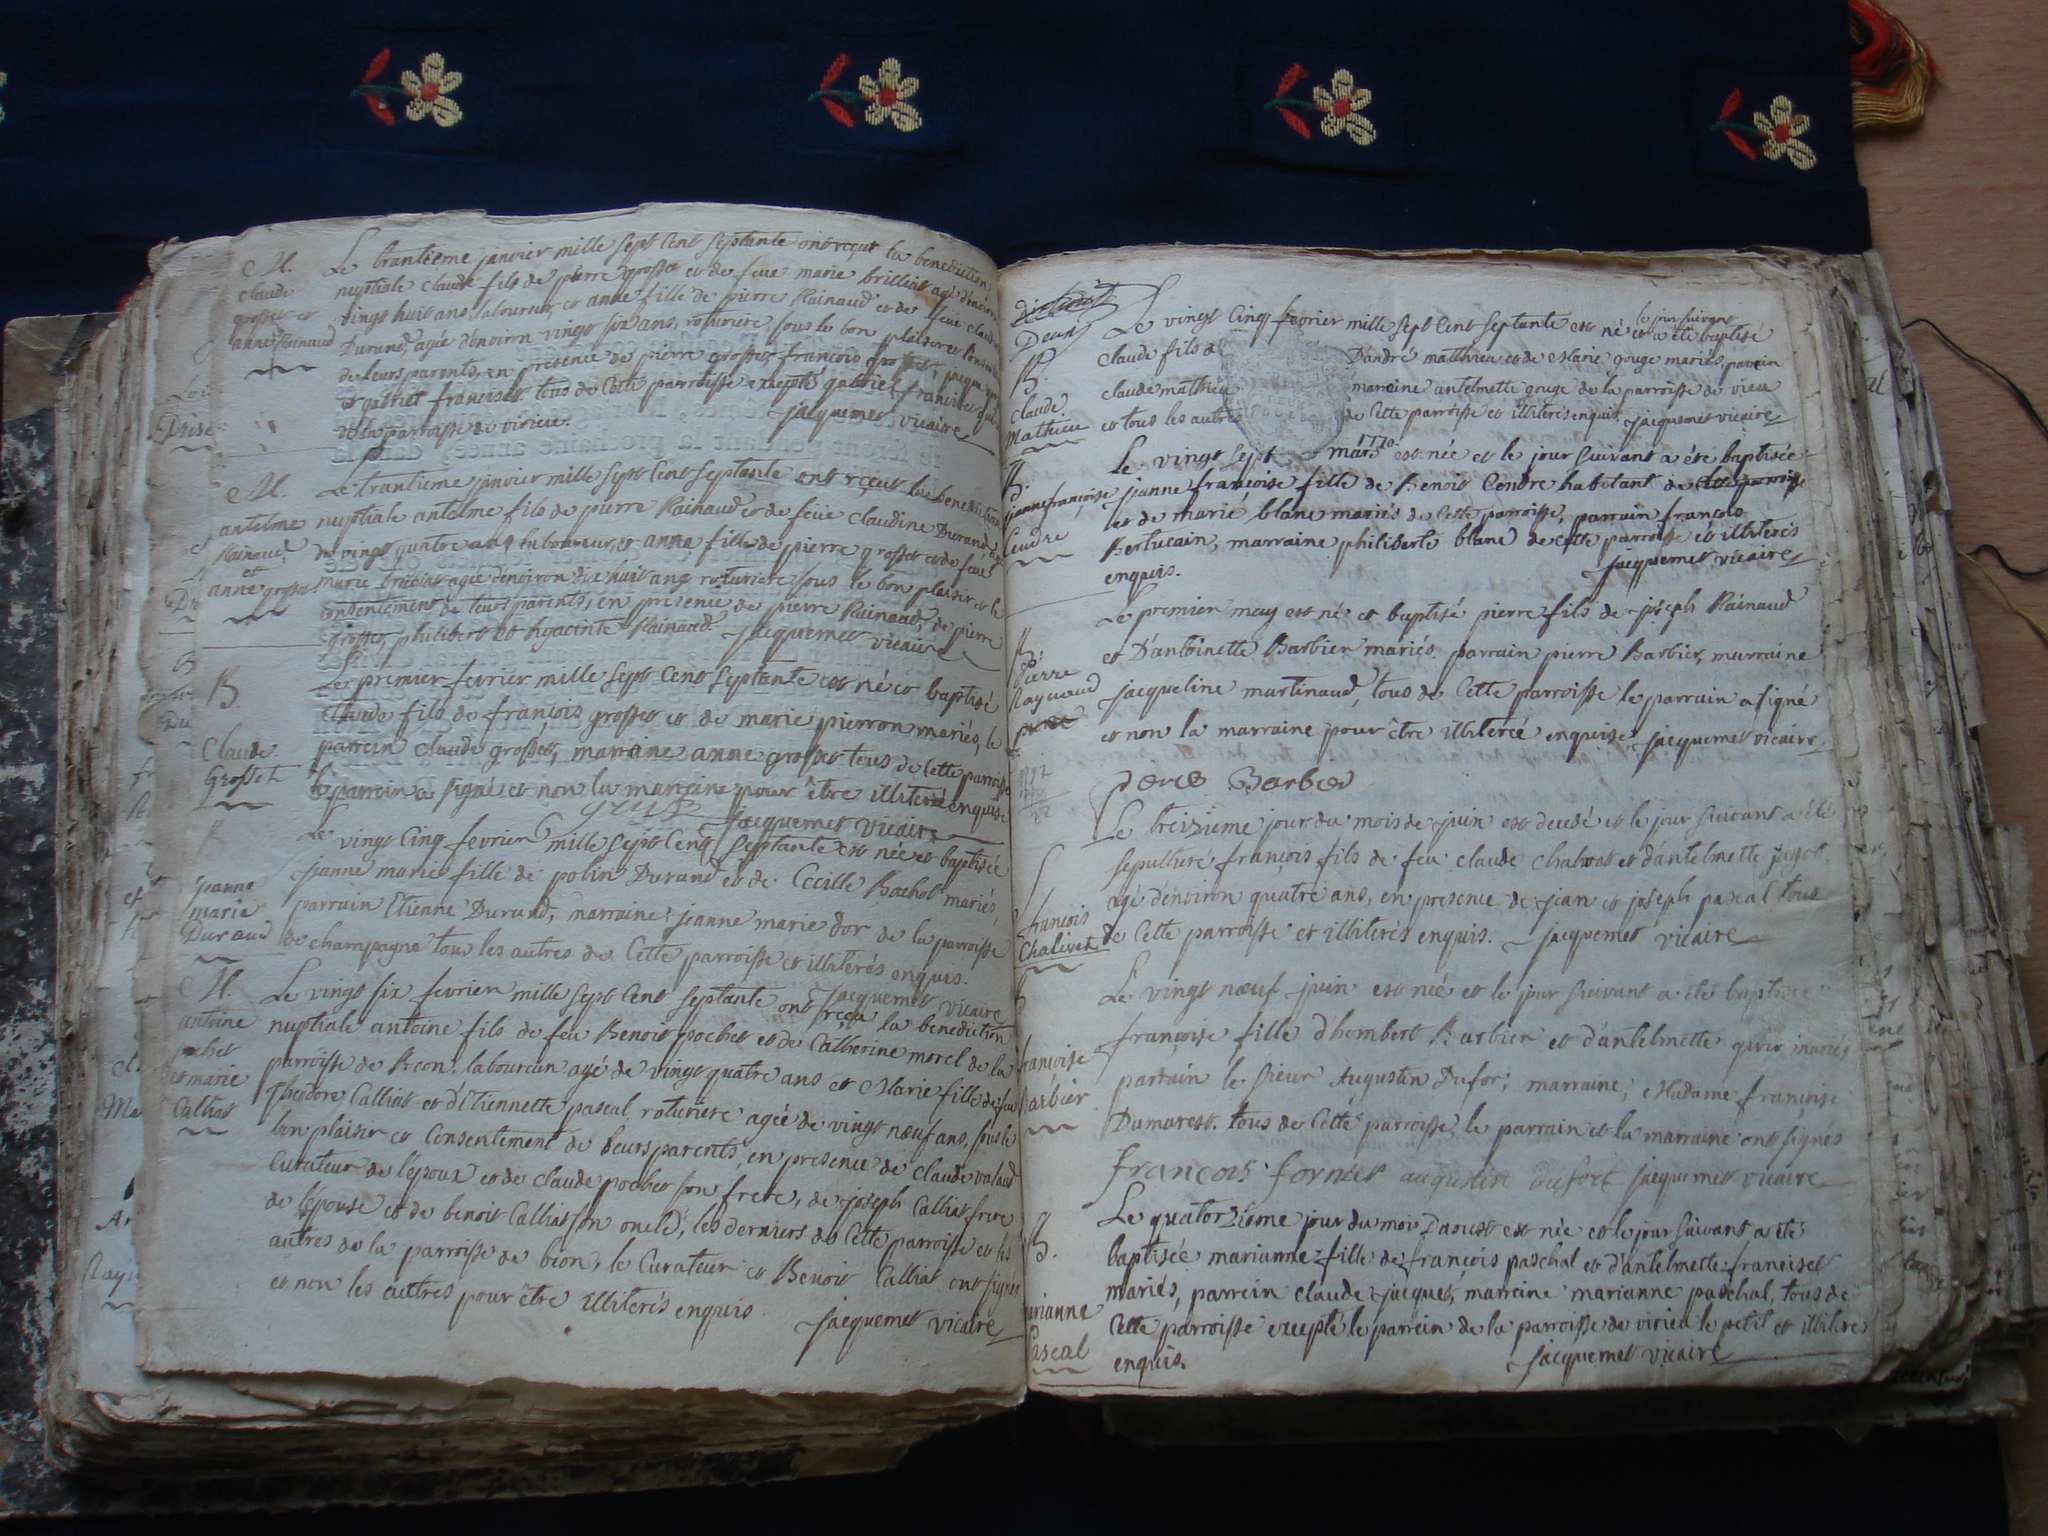 M.
claude
grosset et
anne Rainaud
Le trantieme janvier mille sept cent septante ont reçut la benediction
nuptiale claude fils de pierre grosset et de feue marie brilliat agé d'environ
vingt huit ans, laboureur, et anne fille de pierre Rainaud et de feue claudine
Durand, agée d'environ vingt six ans, roturiere, sous le bon plaisir et consentement
de leurs parents, en presence de pierre grosset, françois grosset, jacque
et gabriel franciset tous de cette parroisse excepté gabriel francisset qui est
de la parroisse de virieu. jacquemet vicaire
M.
antelme
Rainaud
et
anne grosset
Le trantieme janvier mille sept cent septante ont reçut la benediction
nuptiale antelme fils de pierre Rainaud et de feüe claudine Durand, agé
de vingt quatre ans laboureur, et anne fille de pierre grosset et de feue
marie brilliat agée d'environ dix huit ans roturiere sous le bon plaisir et le
consentement de leurs parents, en presence de pierre Rainaud, de pierre
grosset, philibert et hyacinte Rainaud. jacquemet vicaire
B.
Claude
Grosset
Le premier fevrier mille sept cent septante est né et baptisé
claude fils de françois grosset et de marie pierron mariés, le
parrein claude grosset, marraine anne grosset tous de cette parroisse
le parrein a signé et non la marraine pour être illiteré enquise
jacquemet vicaire
jeanne
marie
Durand
Le vingt cinq fevrier mille sept cent septante est née et baptisée
jeanne marie fille de polin Durand et de Cecille Bachot mariés,
parrain Etienne Durand, marraine jeanne marie dor de la parroisse
de champagne tous les autres de cette parroisse et illiterés enquis.
jacquemet vicaire
M.
antoine
pochet
et marie
Calliat
Le vingt six fevrier mille sept cent septante ont reçu la benediction
nuptiale antoine fils de feu Benoit pochet et de Catherine morel de la
parroisse de Beon, laboureur agé de vingt quatre ans et Marie fille de feu
Theodore Calliat et d'Etiennette pascal, roturiere agée de vingt nœuf ans, sous le
bon plaisir et Consentement de leurs parents, en presence de claude valaud
Curateur de l'epoux et de claude pochet son frere, de joseph Calliat frere
de l'epouse et de benoit Calliat son oncle, les derniers de cette parroisse et les
autres de la parroisse de beon, le Curateur et Benoit Calliat ont signés
et non les autres pour être illiterés enquis.
jacquemet vicaire
B.
claude
Mathieu
Le vingt Cinq fevrier mille sept Cent septante est né et a été baptisé
le jour suivant
claude fils d D'andré mathieu et de Marie gouge mariés, parrein
claude mathieu marreine antelmette gouge de la parroisse de vieu
et tous les autres de cette parroisse et illiterés enquis. jacquemet vicaire
B.
jeanne françoise
Cendre
Le vingt sept mars 1770 est née et le jour suivant a été baptisée
jeanne françoise fille de Benoit Cendre habitant de cette parroisse
et de marie blanc mariés de cette parroisse, parrain françois
Bertucain, marraine philiberte blanc de cette parroisse et illiterés
enquis. jacquemet vicaire
B.
Pierre
Raynaud
Le premier may est né et baptisé pierre fils de joseph Rainaud
et D'antoinette Barbier mariés. parrain pierre Barbier, marraine
jacqueline martinaud, tous de Cette parroisse le parrain a signé
et non la marraine pour être illiterée enquise jacquemet vicaire
Barbier
françois
Chalivet
Le treizieme jour du mois de juin est decedé et le jour suivant a été
sepulturé françois fils de feu claude Chalvat et d'antelmette jagot
agé d'environ quatre ans, en presence de jean et joseph pascal tous
de Cette parroisse et illiterés enquis. jacquemet vicaire
B
françoise
Barbier
Le vingt nœuf juin est née et le jour suivant a été baptisée
françoise fille d'hombert Barbier et d'antelmette mariés
parrain le sieur Augustin Dufor; marraine, Madame françoise
Dumarest. tous de Cette parroisse, le parrain et la marraine ont signés
françois fornier augustin dufort jacquemet vicaire
B.
marianne
Pascal
Le quatorzième jour du moi D'aoust est née et le jour suivant a été
baptisée marianne fille de françois paschal et d'antelmette franciset
mariés, parrein claude jacquet, marreine marianne paschal, tous de
Cette parroisse excepté le parrein de la parroisse de virieu le petit et illiterés
enquis. jacquemet vicaire